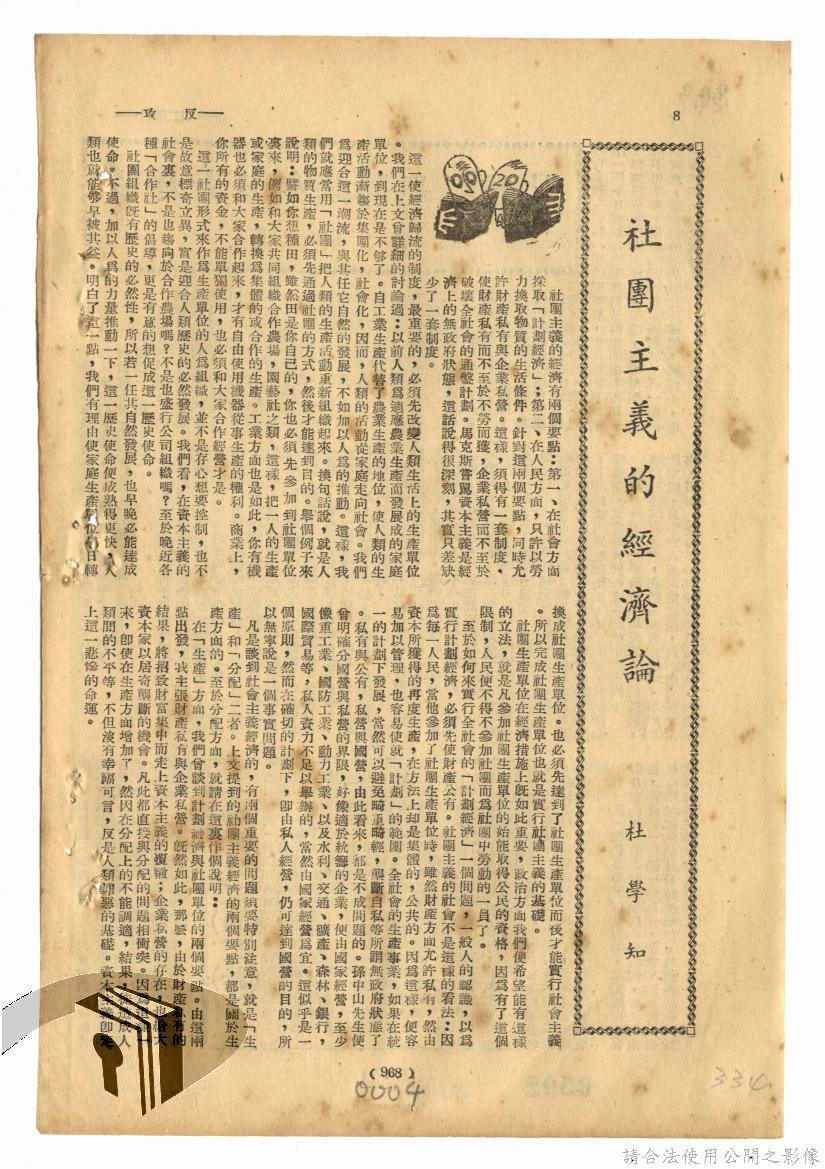 8
——反 攻——
社團主義的經濟論
杜學知
社團主義的經濟有兩個要點：第一、在社會方面
採取「計劃經濟」；第二、在人民方面，只許以勞
力換取物質的生活條件。針對這兩個要點，同時允
許財產私有與企業私營。這樣，須得有一套制度，
使財產私有而不至於不勞而獲，企業私營而不至於
破壞全社會的通盤計劃。馬克斯嘗罵資本主義是經
濟上的無政府狀態，這話說得很深刻，其實只差缺
少了一套制度。
這一使經濟歸流的制度，最重要的，必須先改變人類生活上的生產單位
。我們在上文曾詳細的討論過：以前人類為適應農業生產而發展成的家庭
單位，到現在是不够了。自工業生產代替了農業生產的地位，使人類的生
產活動漸趨於集團化，社會化，因而，人類的活動從家庭走向社會。我們
為迎合這一潮流，與其任它自然的發展，不如加以人為的推動。這樣，我
們就應當用「社團」把人類的生產活動重新組織起來。換句話說，就是人
類的物質生產，必須先通過社團的方式，然後才能達到目的。舉個例子來
說明：譬如你想種田，雖然田是你自己的，你也必須先參加到社團單位
裏來，例如和大家共同組織合作農場，園藝社之類，這樣，把一人的生產
或家庭的生產，轉換為集體的或合作的生產。工業方面也是如此，你有機
器也必須和大家合作起來，才有自由使用機器從事生產的權利。商業上，
你所有的資金，不能單獨使用，也必須和大家合作經營才是。
這一社團形式來作為生產單位的人為組織，並不是存心想要控制，也不
是故意標奇立異，實是迎合人類歷史的必然發展。我們看，在資本主義的
社會裏，不是也趨向於合作農場嗎？不是也盛行公司組織嗎？至於晚近各
種「合作社」的倡導，更是有意的想促成這一歷史使命。
社團組織旣有歷史的必然性，所以若一任其自然發展，也早晚必能達成
使命。不過，加以人為的力量推動一下，這一歷史使命便成熟得更快，人
類也就能够早被其益。明白了這一點，我們有理由使家庭生產單位早日轉
換成社團生產單位。也必須先達到了社團生產單位而後才能實行社會主義
。所以完成社團生產單位也就是實行社團主義的基礎。
社團生產單位在經濟措施上旣如此重要，政治方面我們便希望能有這樣
的立法，就是凡參加社團生產單位的始能取得公民的資格，因為有了這個
限制，人民便不得不參加社團而為社團中勞動的一員了。
至於如何來實行全社會的「計劃經濟」一個問題，一般人的認識，以為
實行計劃經濟，必須先使財產公有。社團主義的社會不是這樣的看法：因
為每一人民，當他參加了社團生產單位時，雖然財產方面允許私有，然由
資本所獲得的再度生產，在方法上却是集體的，公共的。因為這樣，便容
易加以管理，也容易使就「計劃」的範圍。全社會的生產事業，如果在統
一的計劃下發展，當然可以避免畸重畸輕，壟斷自私等所謂無政府狀態了
。私有與公有，私營與國營，由此看來，都是不成問題的。孫中山先生便
曾明確分國營與私營的界限，好像適於統籌的企業，便由國家經營，至少
像重工業、國防工業、動力工業、以及水利、交通、礦產、森林、銀行，
國際貿易等，私人資力不足以舉辦的，當然由國家經營為宜。這似乎是一
個原則，然而在確切的計劃下，卽由私人經營，仍可達到國營的目的，所
以無寧說是一個事實問題。
凡是談到社會主義經濟的，有兩個重要的問題須要特別注意，就是「生
產」和「分配」二者。上文提到的社團主義經濟的兩個要點，都是關於生
產方面的。至於分配方面，就請在這裏作個說明：
在「生產」方面，我們曾談到計劃經濟與社團單位的兩個要點。由這兩
點出發，我主張財產私有與企業私營。旣然如此，那麼，由於財產私有的
結果，將招致財富集中而走上資本主義的覆轍；企業私營的存在，也給大
資本家以居奇壟斷的機會。凡此都直接與分配的問題相衝突。因為這樣一
來，卽使在生產方面增加了，然因在分配上的不能調適，結果，徒造成人
類間的不平等，不但沒有幸福可言，反是人類罪惡的基礎。資本主義卽走
上這一悲慘的命運。
(968)
0004
334
請合法使用公開之影像